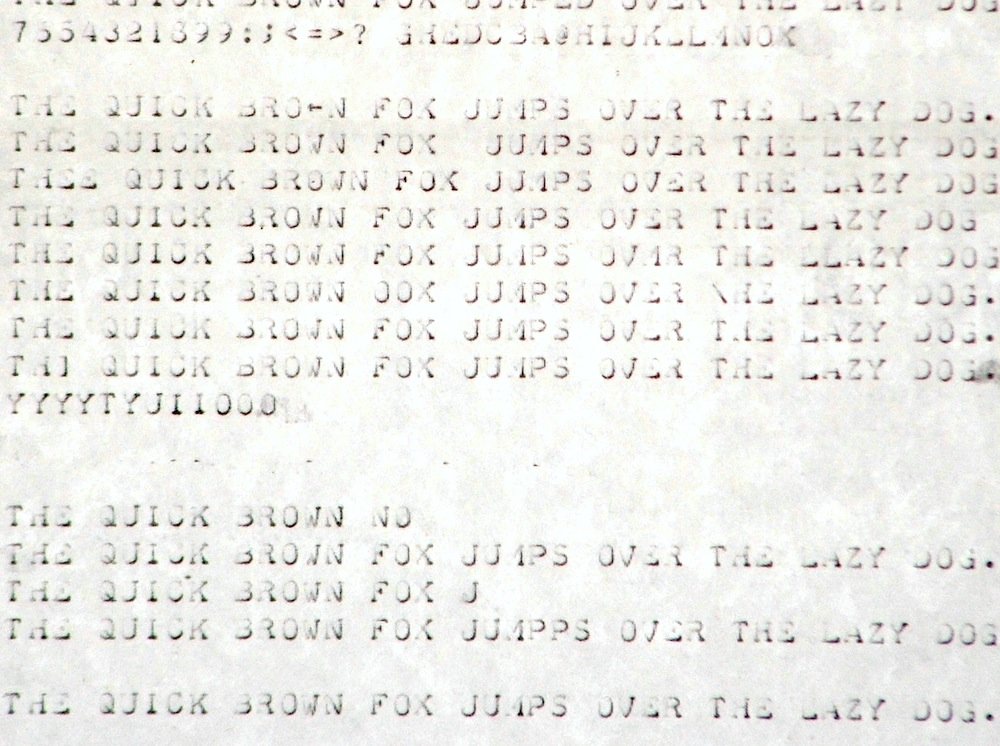 THE QUICK BROWN FOX JUMPED OVER THE LAZY DOG
7654321899:;<=>? GHEDCBA@HIJKLLMNOK

THE QUICK BRO←N FOX JUMPS OVER THE LAZY DOG.
THE QUICK BROWN FOX  JUMPS OVER THE LAZY DOG
THEE QUICK BROWN FOX JUMPS OVER THE LAZY DOG
THE QUICK BROWN FOX JUMPS OVER THE LAZY DOG
THE QUICK BROWN FOX JUMPS OVMR THE LLAZY DOG
THE QUICK BROWN OOX JUMPS OVER \HE LAZY DOG.
THE QUICK BROWN FOX JUMPS OVER THE LAZY DOG.
THI QUICK BROWN FOX JUMPS OVER THE LAZY DOG
YYYYTYJIIOOO

THE QUICK BROWN NO
THE QUICK BROWN FOX JUMPS OVER THE LAZY DOG.
THE QUICK BROWN FOX J
THE QUICK BROWN FOX JUMPPS OVER THE LAZY DOG

THE QUICK BROWN FOX JUMPS OVER THE LAZY DOG.